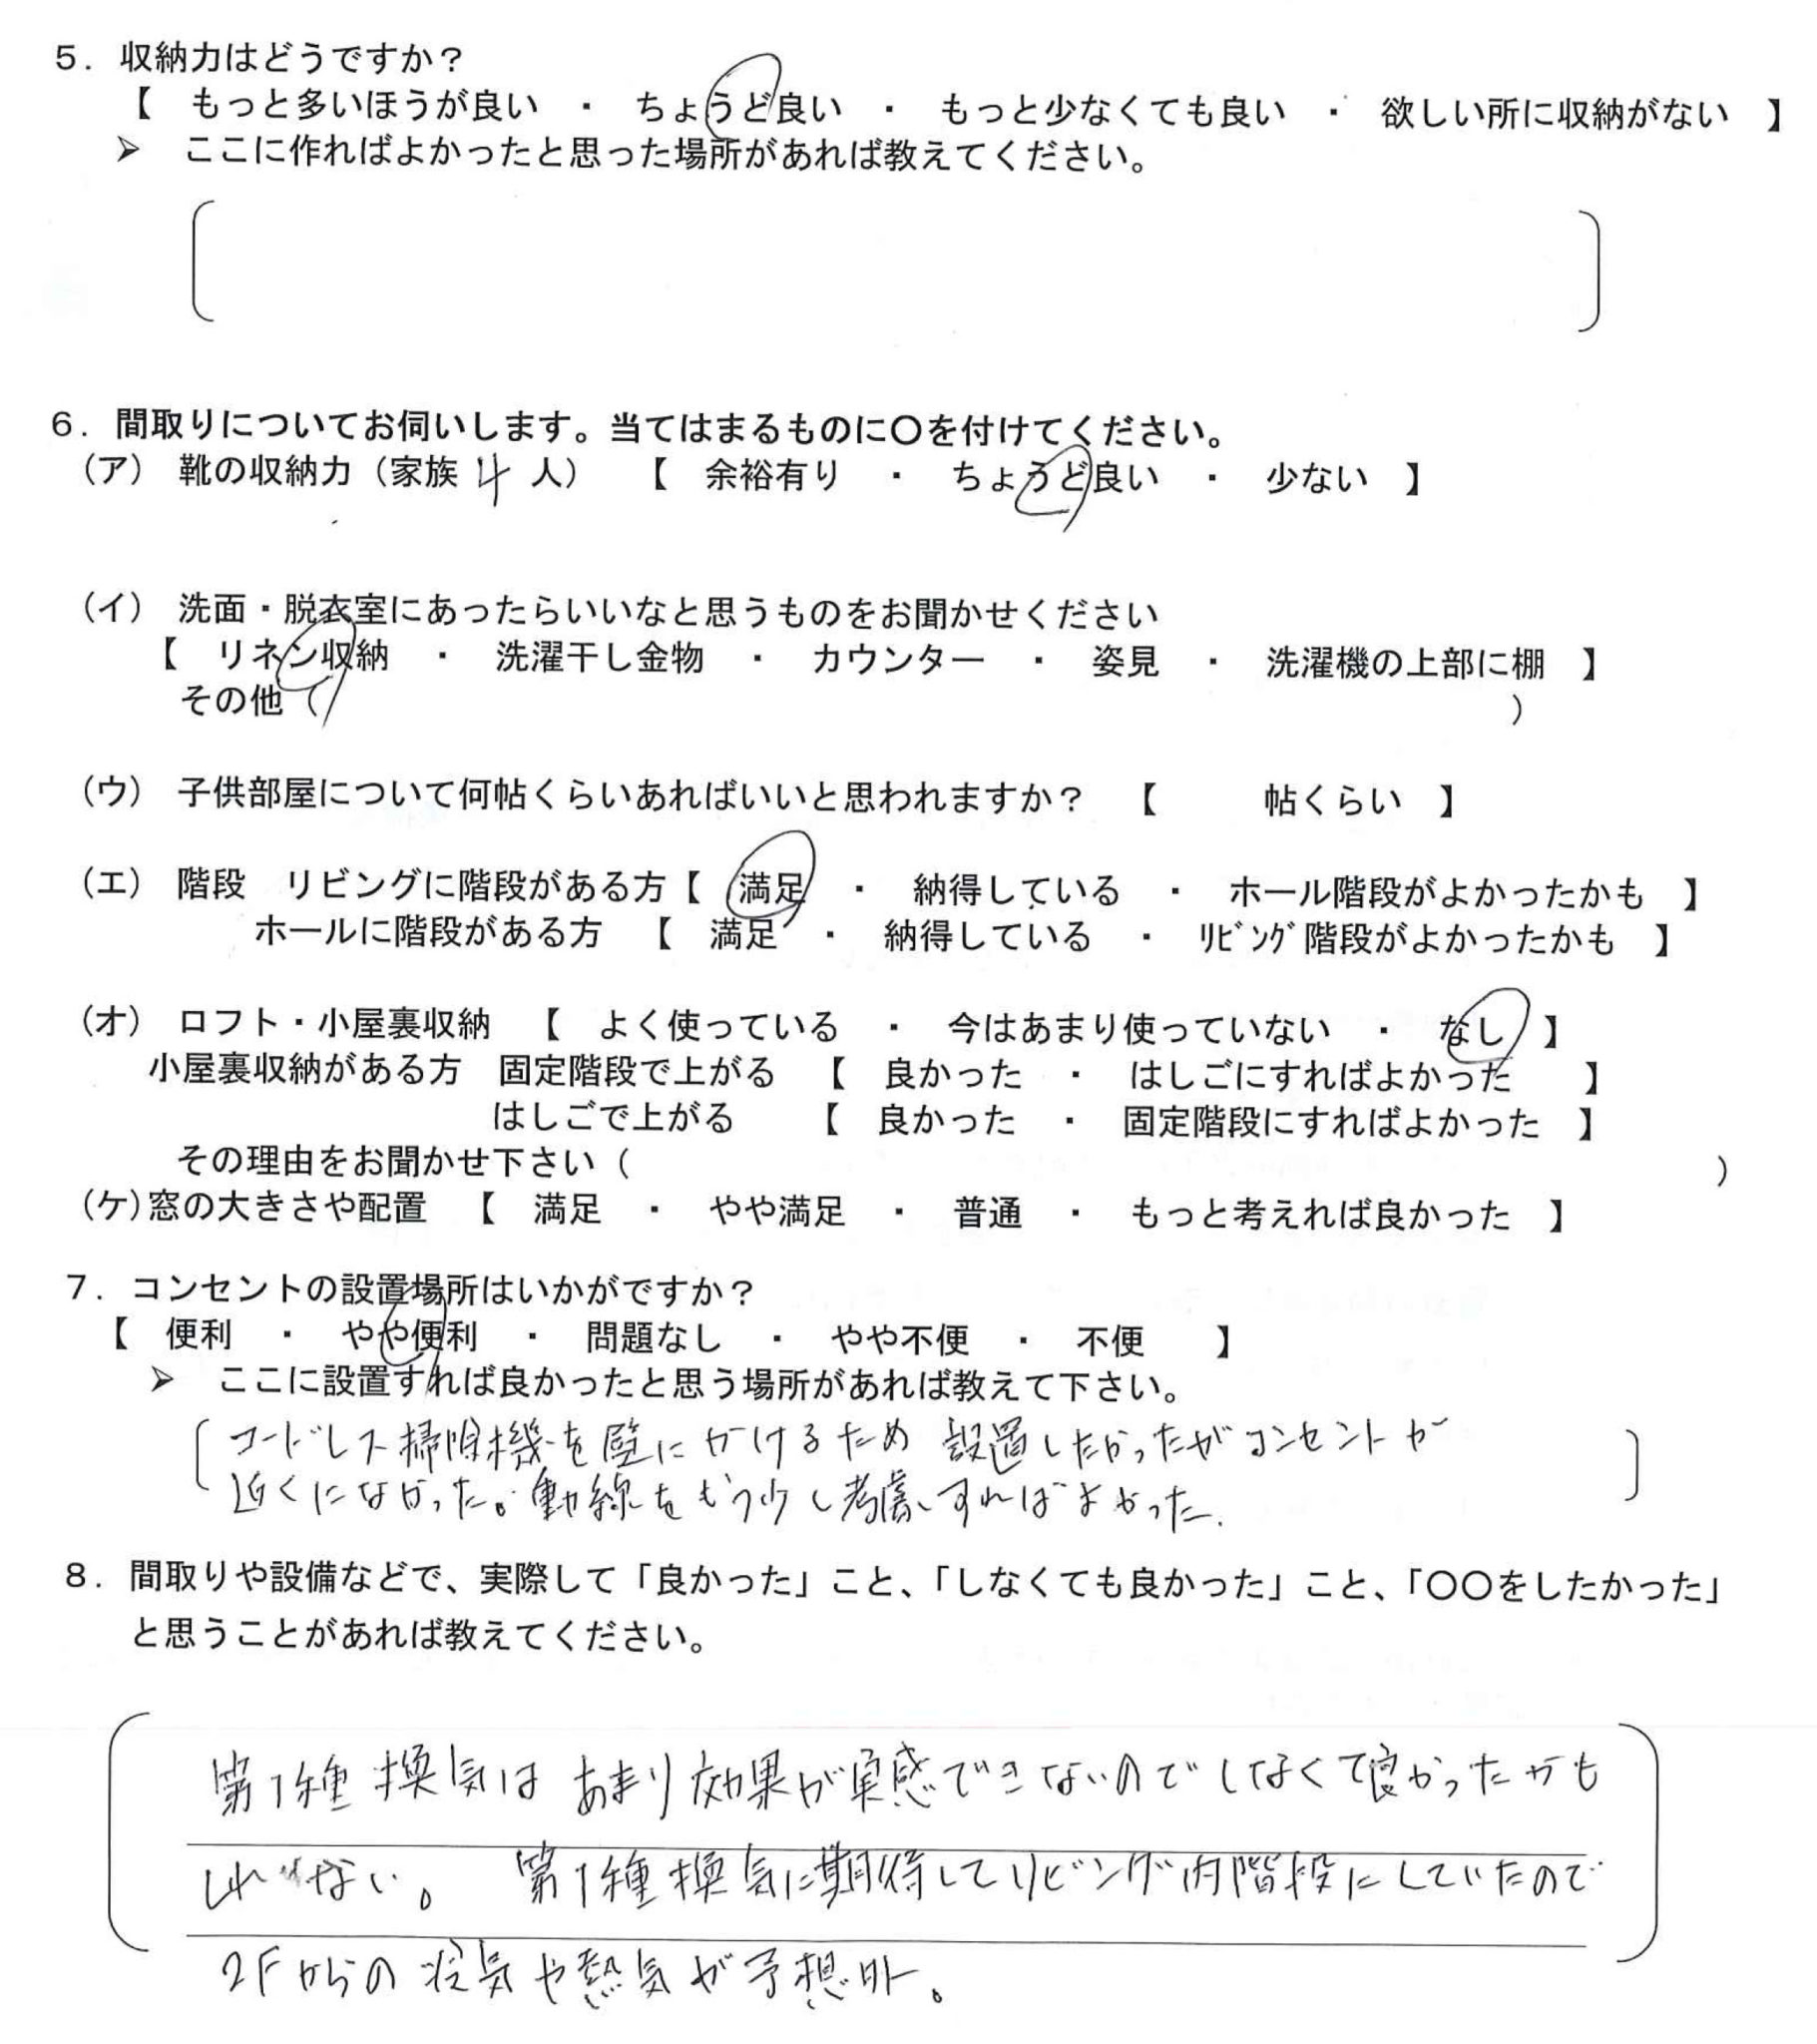 ５．収納力はどうですか？
【　もっと多いほうが良い　・　ちょうど良い　・　もっと少なくても良い　・　欲しい所に収納がない　】
➢　ここに作ればよかったと思った場所があれば教えてください。
６．間取りについてお伺いします。当てはまるものに〇を付けてください。
（ア）　靴の収納力（家族 4 人）　【　余裕有り　・　ちょうど良い　・　少ない　】
（イ）　洗面・脱衣室にあったらいいなと思うものをお聞かせください
【　リネン収納　・　洗濯干し金物　・　カウンター　・　姿見　・　洗濯機の上部に棚　】
その他（　　　）
（ウ）　子供部屋について何帖くらいあればいいと思われますか？　【　　　帖くらい　】
（エ）　階段　リビングに階段がある方【　満足　・　納得している　・　ホール階段がよかったかも　】
ホールに階段がある方　【　満足　・　納得している　・　ﾘﾋﾞﾝｸﾞ階段がよかったかも　】
（オ）　ロフト・小屋裏収納　【　よく使っている　・　今はあまり使っていない　・　なし　】
小屋裏収納がある方　固定階段で上がる　【　良かった　・　はしごにすればよかった　】
はしごで上がる　【　良かった　・　固定階段にすればよかった　】
その理由をお聞かせ下さい（　　　）
（ケ）窓の大きさや配置　【　満足　・　やや満足　・　普通　・　もっと考えれば良かった　】
７．コンセントの設置場所はいかがですか？
【　便利　・　やや便利　・　問題なし　・　やや不便　・　不便　】
➢　ここに設置すれば良かったと思う場所があれば教えて下さい。
コードレス掃除機を壁にかけるため 設置したかったがコンセントが
近くになかった。動線をもう少し考慮すればよかった.
８．間取りや設備などで、実際して「良かった」こと、「しなくても良かった」こと、「〇〇をしたかった」
と思うことがあれば教えてください。
第1種換気は あまり効果が実感できないのでしなくて良かったかも
しれない。　第1種換気に期待してリビング内階段にしていたので
2Fからの冷気や熱気が予想外。